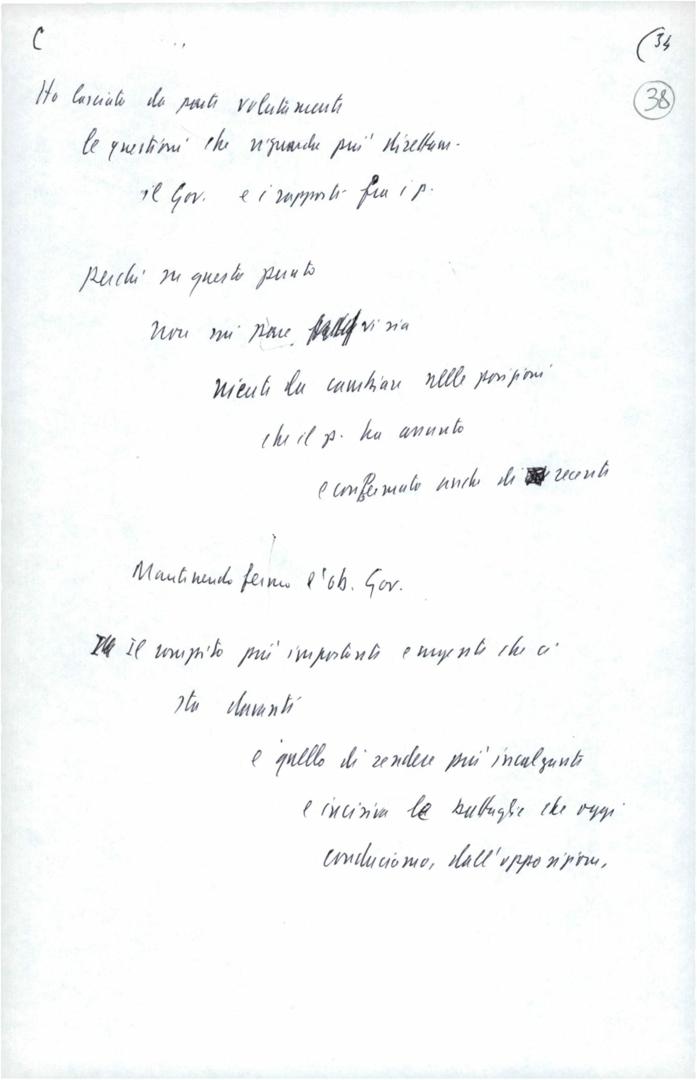 C
(34
38
Ho lasciato da parte volutamente
le questioni che riguarda più direttam.
il Gov. e i rapporti fra i p.
perché su questo punto
non mi pare vi sia
niente da cambiare nelle posizioni
che il p. ha assunto
e confermato anche di recente
Mantenendo fermo l'ob. Gov.
Il compito più importante e urgente che ci
sta davanti
è quello di rendere più incalzante
e incisiva la battaglia che oggi
conduciamo, dall'opposizione,